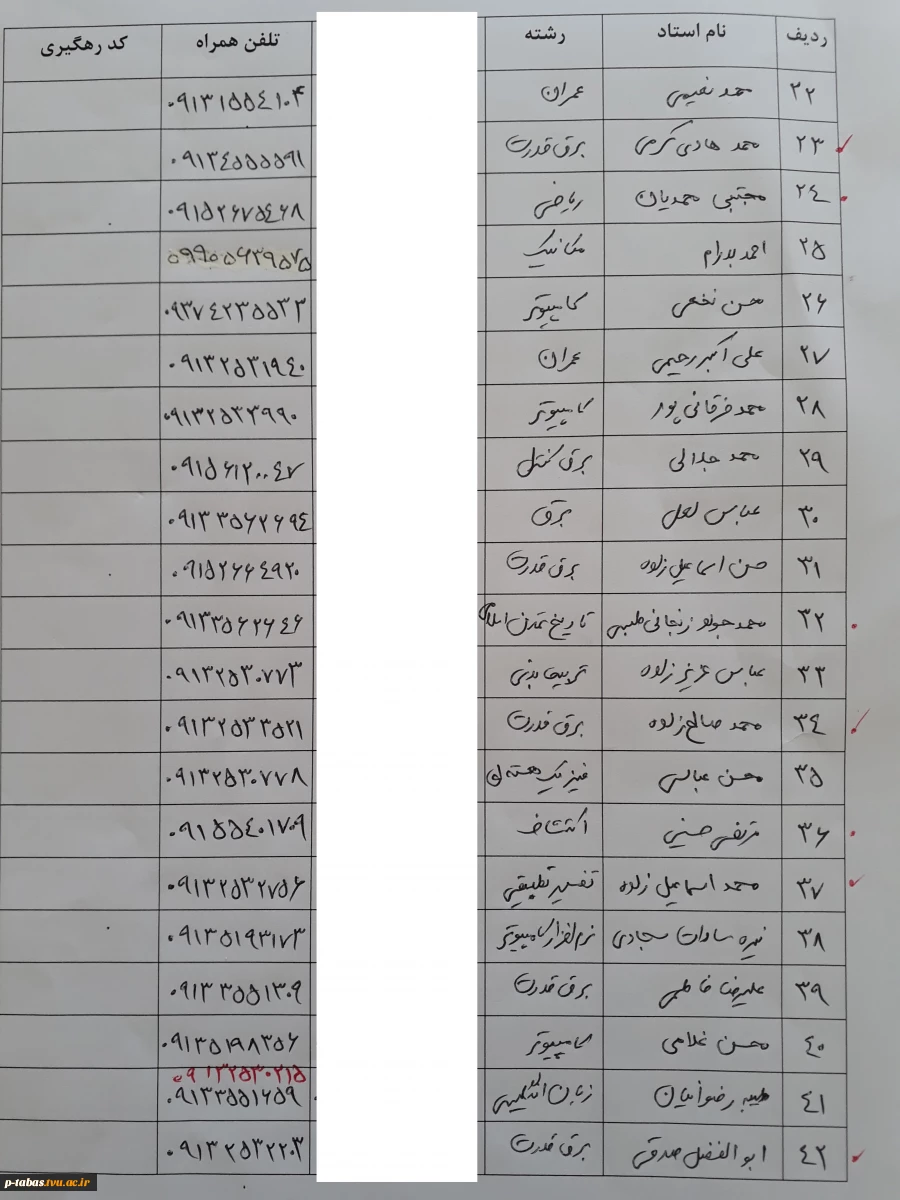 ردیف نام استاد رشته تلفن همراه کد رهگیری
۲۲ محمد نعیمی عمران ۰۹۱۳۱۵۵٤۱۰۴
۲۳ محمد هادی کرمی برق قدرت ۰۹۱۳٤۵۵۵۵۹۱
۲٤ مجتبی محمدیان ریاضی ۰۹۱۵۲۶۷۵٤۶۸
۲۵ احمد پدرام مکانیک
۲۶ حسن نخعی کامپیوتر ۰۹۳۷٤۲۳۵۵۳۳
۲۷ علی اکبر رحیمی عمران ۰۹۱۳۲۵۳۱۹٤۰
۲۸ محمد فرقانی پور کامپیوتر ۰۹۱۳۲۵۳۳۹۹۰
۲۹ محمد جدالی برق کنترل ۰۹۱۵۶۱۲۰۰٤۷
۳۰ عباس لعل برق ۰۹۱۳۳۵۶۲۶۹٤
۳۱ حسن اسماعیل زاده برق قدرت ۰۹۱۵۲۶۶٤۹۲۰
۳۲ محمد جواد زنجانی طبسی تاریخ تمدن اسلامی ۰۹۱۳۳۵۶۲۶٤۶
۳۳ عباس عزیز زاده تربیت بدنی ۰۹۱۳۲۵۳۰۷۷۳
۳٤ محمد صالح زاده برق قدرت ۰۹۱۳۲۵۳۳۵۲۱
۳۵ محسن عباسی فیزیک هسته ای ۰۹۱۳۲۵۳۰۷۷۸
۳۶ مرتضی حسینی اکتشاف ۰۹۱۵۵٤۰۱۷۰۹
۳۷ محمد اسماعیل زاده تفسیر تطبیقی ۰۹۱۳۲۵۳۲۷۵۶
۳۸ نیره سادات سجادی نرم افزار کامپیوتر ۰۹۱۳۵۱۹۳۱۷۳
۳۹ علیرضا فاطمی برق قدرت ۰۹۱۳۳۵۵۱۳۰۹
٤۰ محسن غلامی کامپیوتر ۰۹۱۳۵۱۹۸۳۵۶
۰۹۱۳۲۵۳۰۲۱۵
٤۱ طیبه رضوانیان زبان انگلیسی ۰۹۱۳۳۵۵۱۶۵۹
٤۲ ابوالفضل صدقی برق قدرت ۰۹۱۳۲۵۳۲۲۰۳
p-tabas.tvu.ac.ir